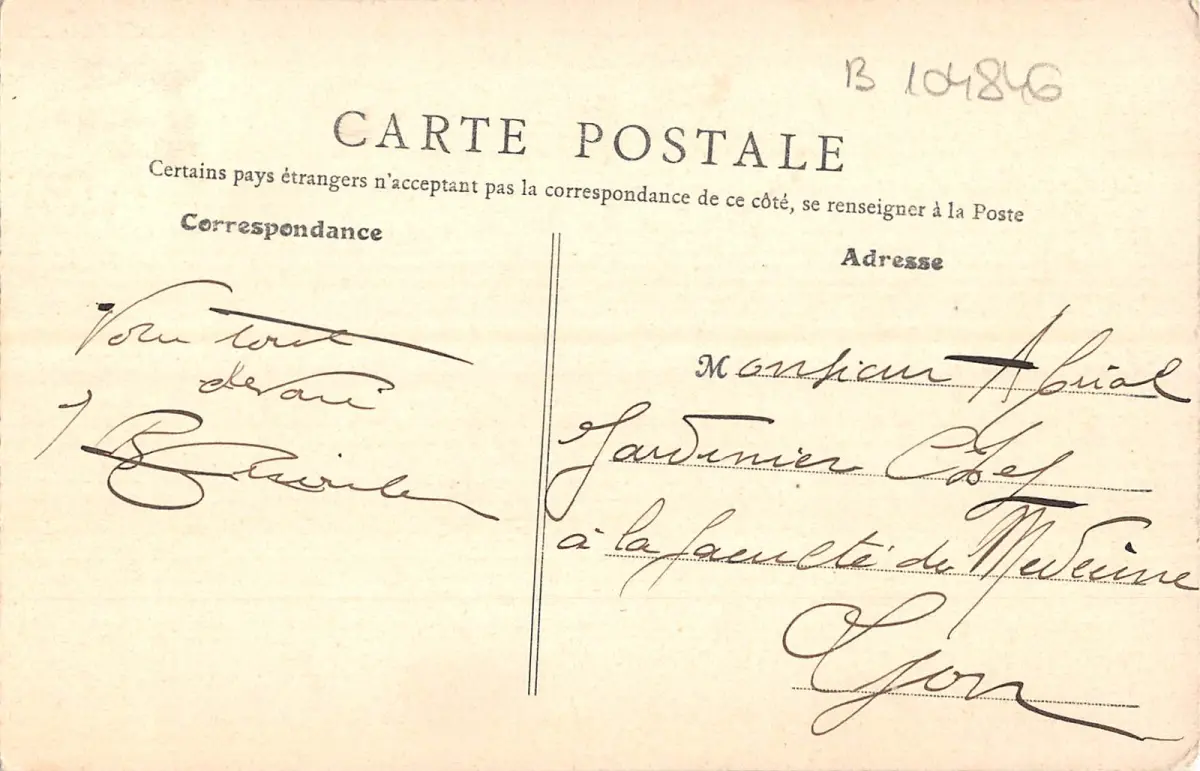 B 104846
CARTE POSTALE
Certains pays étrangers n'acceptant pas la correspondance de ce côté, se renseigner à la Poste
Correspondance
Adresse
Votre tout
dévoué
Monsieur Abrial
Jardinier Chef
à la faculté de Medecine
Lyon